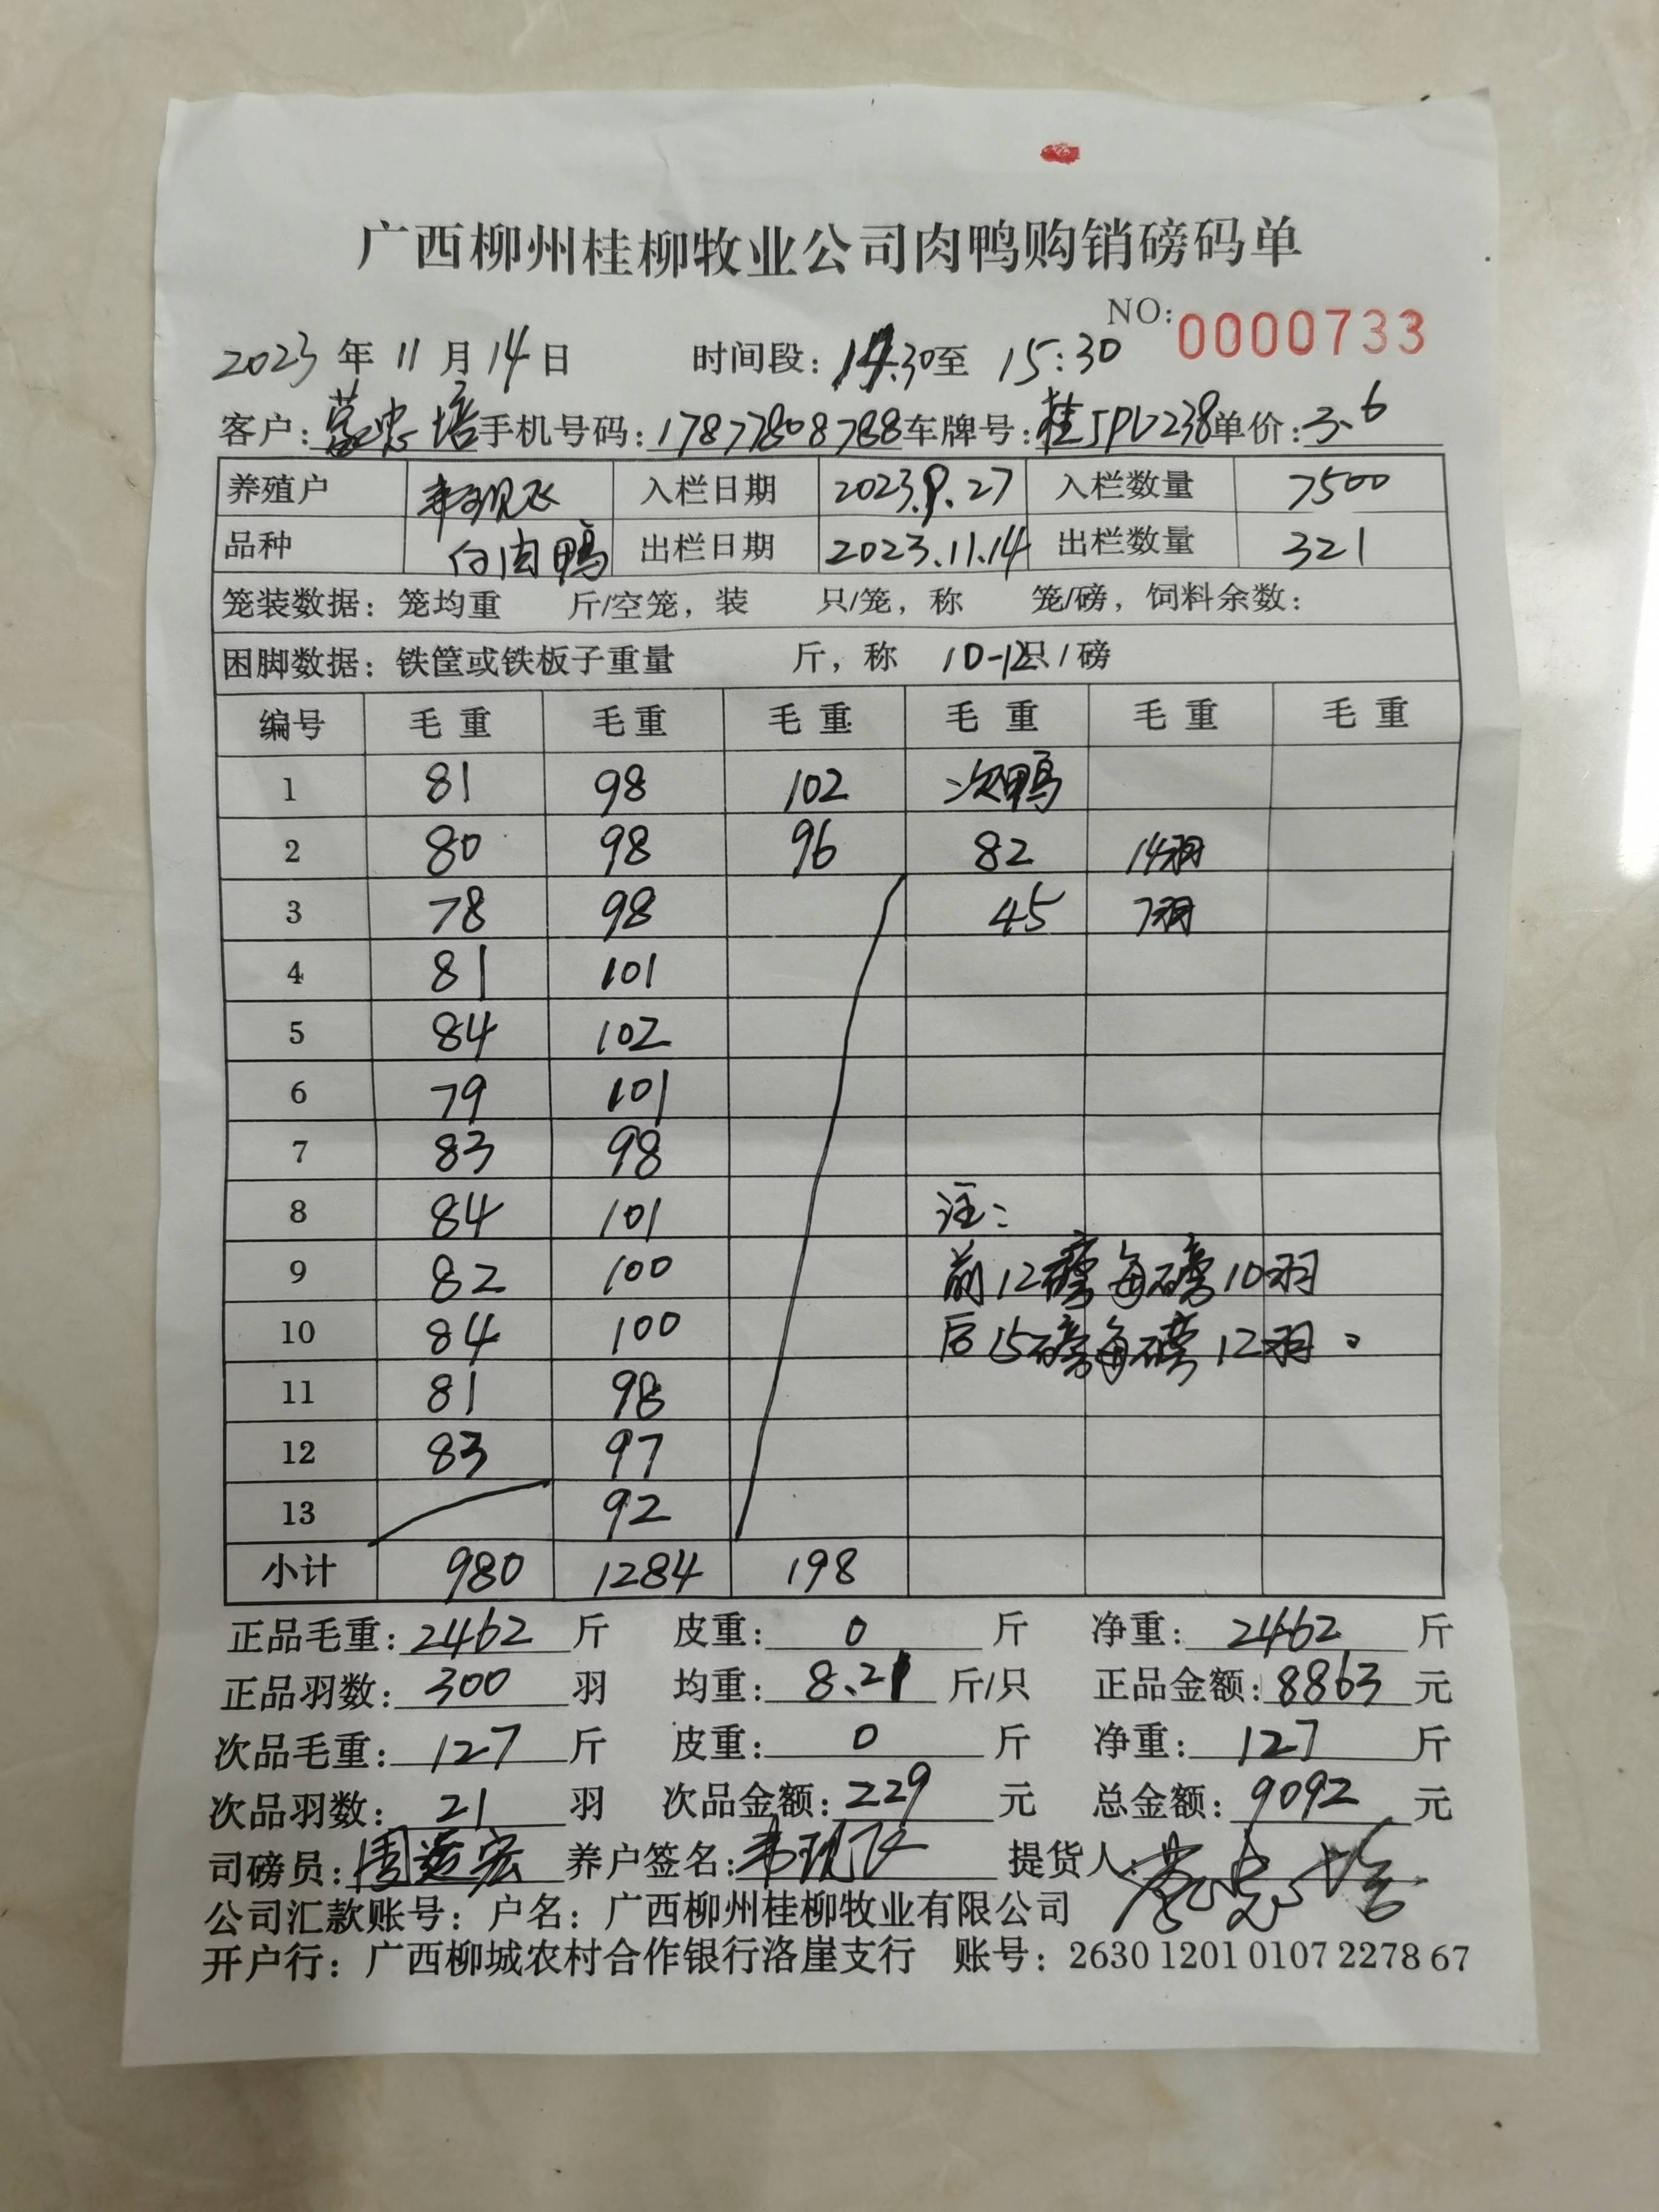 广西柳州桂柳牧业公司肉鸭购销磅码单
NO: 0000733
2023 年 11 月 14 日 时间段: 14:30至 15:30
客户: 培 手机号码: 17877808788 车牌号: 桂 单价: 3.6
养殖户 韦现飞 入栏日期 2023.9.27 入栏数量 7500
品种 白肉鸭 出栏日期 2023.11.14 出栏数量 321
笼装数据: 笼均重 斤/空笼, 装 只/笼, 称 笼/磅, 饲料余数:
困脚数据: 铁筐或铁板子重量 斤, 称 10-12只/磅
编号 毛重 毛重 毛重 毛重 毛重 毛重
1 81 98 102 次鸭
2 80 98 96 82 14羽
3 78 98 45 7羽
4 81 101
5 84 102
6 79 101
7 83 98
8 84 101 注:
9 82 100 前12磅每磅10羽
10 84 100 后15磅每磅12羽。
11 81 98
12 83 97
13 92
小计 980 1284 198
正品毛重: 2462 斤 皮重: 0 斤 净重: 2462 斤
正品羽数: 300 羽 均重: 8.21 斤/只 正品金额: 8863 元
次品毛重: 127 斤 皮重: 0 斤 净重: 127 斤
次品羽数: 21 羽 次品金额: 229 元 总金额: 9092 元
司磅员: 周 宏 养户签名: 韦现飞 提货人:
公司汇款账号: 户名: 广西柳州桂柳牧业有限公司
开户行: 广西柳城农村合作银行洛崖支行 账号: 2630 1201 0107 2278 67